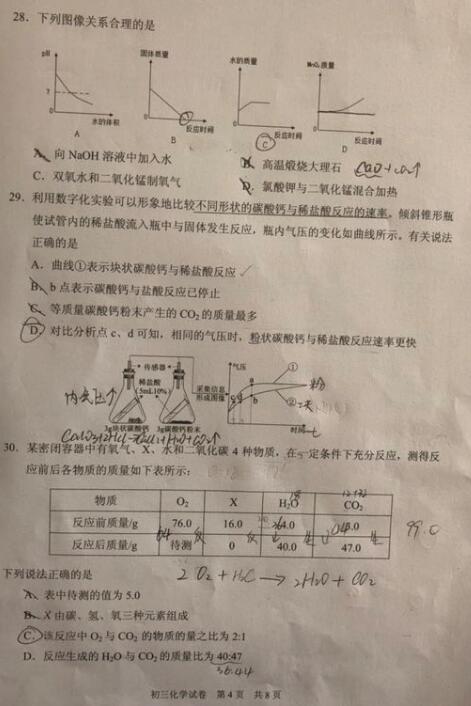 28. 下列图像关系合理的是
pH
7
0
水的体积
A
固体质量
0
反应时间
B
水的质量
0
反应时间
C
MnO₂质量
0
反应时间
D
A. 向 NaOH 溶液中加入水
B. 高温煅烧大理石
CaO+CO₂↑
C. 双氧水和二氧化锰制氧气
D. 氯酸钾与二氧化锰混合加热
29. 利用数字化实验可以形象地比较不同形状的碳酸钙与稀盐酸反应的速率。倾斜锥形瓶
使试管内的稀盐酸流入瓶中与固体发生反应，瓶内气压的变化如曲线所示。有关说法
正确的是
A. 曲线①表示块状碳酸钙与稀盐酸反应 ✓
B. b 点表示碳酸钙与盐酸反应已停止
C. 等质量碳酸钙粉末产生的 CO₂ 的质量最多
D. 对比分析点 c、d 可知，相同的气压时，粉状碳酸钙与稀盐酸反应速率更快
传感器
稀盐酸
(5mL10%)
采集信息
形成图像
3g块状碳酸钙
3g碳酸钙粉末
气压
①
粉
②
块
a
b
c
d
时间
t
内气压↑
30. 某密闭容器中有氧气、X、水和二氧化碳 4 种物质，在一定条件下充分反应，测得反
应前后各物质的质量如下表所示：
物质 O₂ X H₂O CO₂
反应前质量/g 76.0 16.0 4.0 .0
反应后质量/g 待测 0 40.0 47.0
64
反
反
生
生
99.0
下列说法正确的是
2O₂+H₄C→2H₂O+CO₂
A. 表中待测的值为 5.0
B. X 由碳、氢、氧三种元素组成
C. 该反应中 O₂ 与 CO₂ 的物质的量之比为 2:1
D. 反应生成的 H₂O 与 CO₂ 的质量比为 40:47
36:44
初三化学试卷 第 4 页 共 8 页